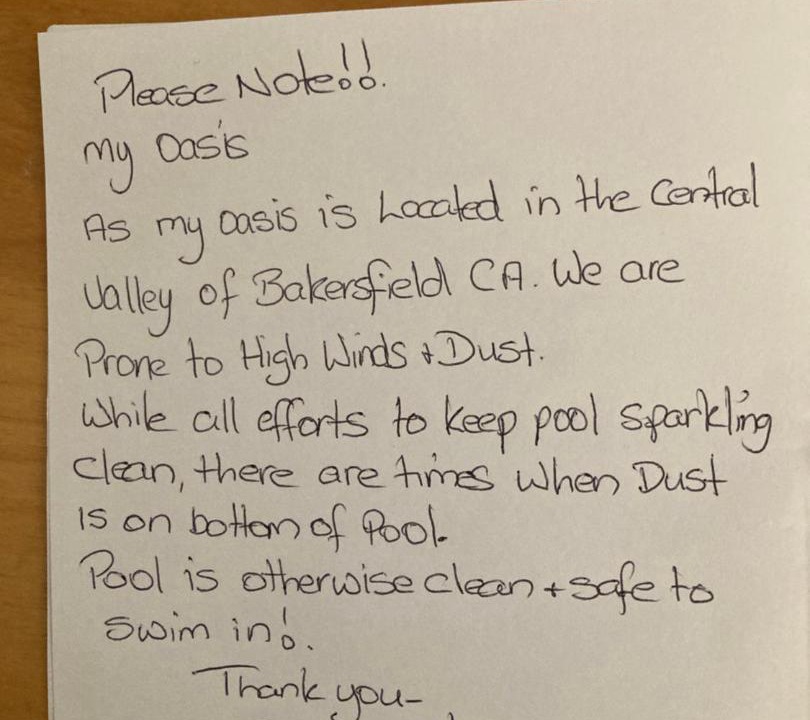 Please Note!!.
my Oasis
As my oasis is Located in the Central
Valley of Bakersfield CA. We are
Prone to High Winds + Dust.
While all efforts to keep pool sparkling
clean, there are times when Dust
is on bottom of Pool.
Pool is otherwise clean + safe to
swim in!.
Thank you-